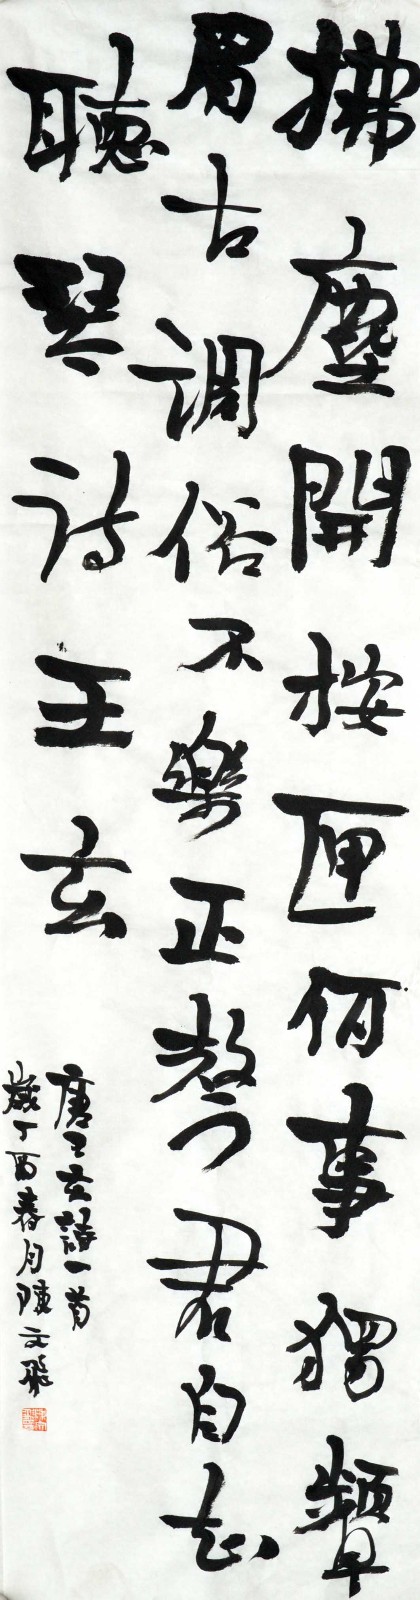 拂塵開按匣何事獨顰
眉古調俗不樂正聲君自知
聽琴詩王玄
唐王玄詩一首
歲丁酉春月陳文飛